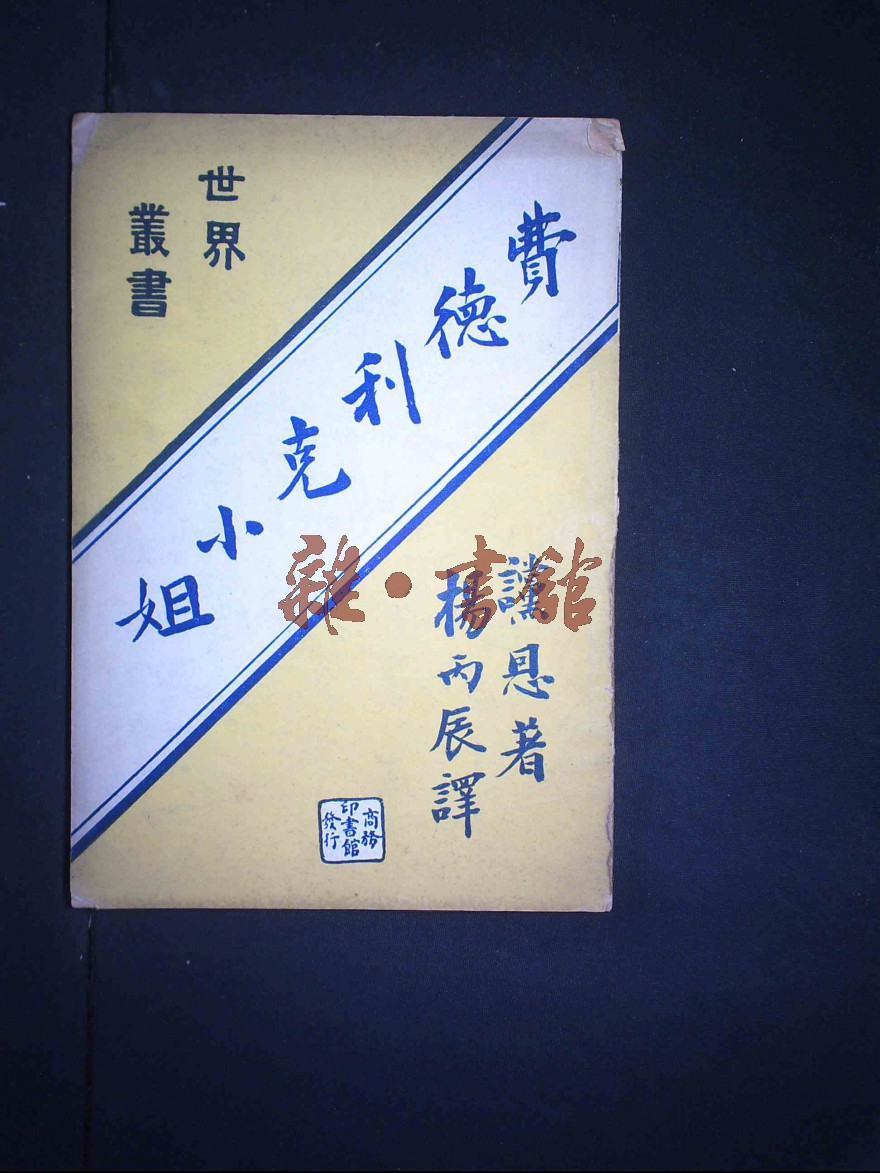 世界
叢書
費德利克小姐
讜恩著
楊丙辰譯
商務
印書館
發行
雜·書館